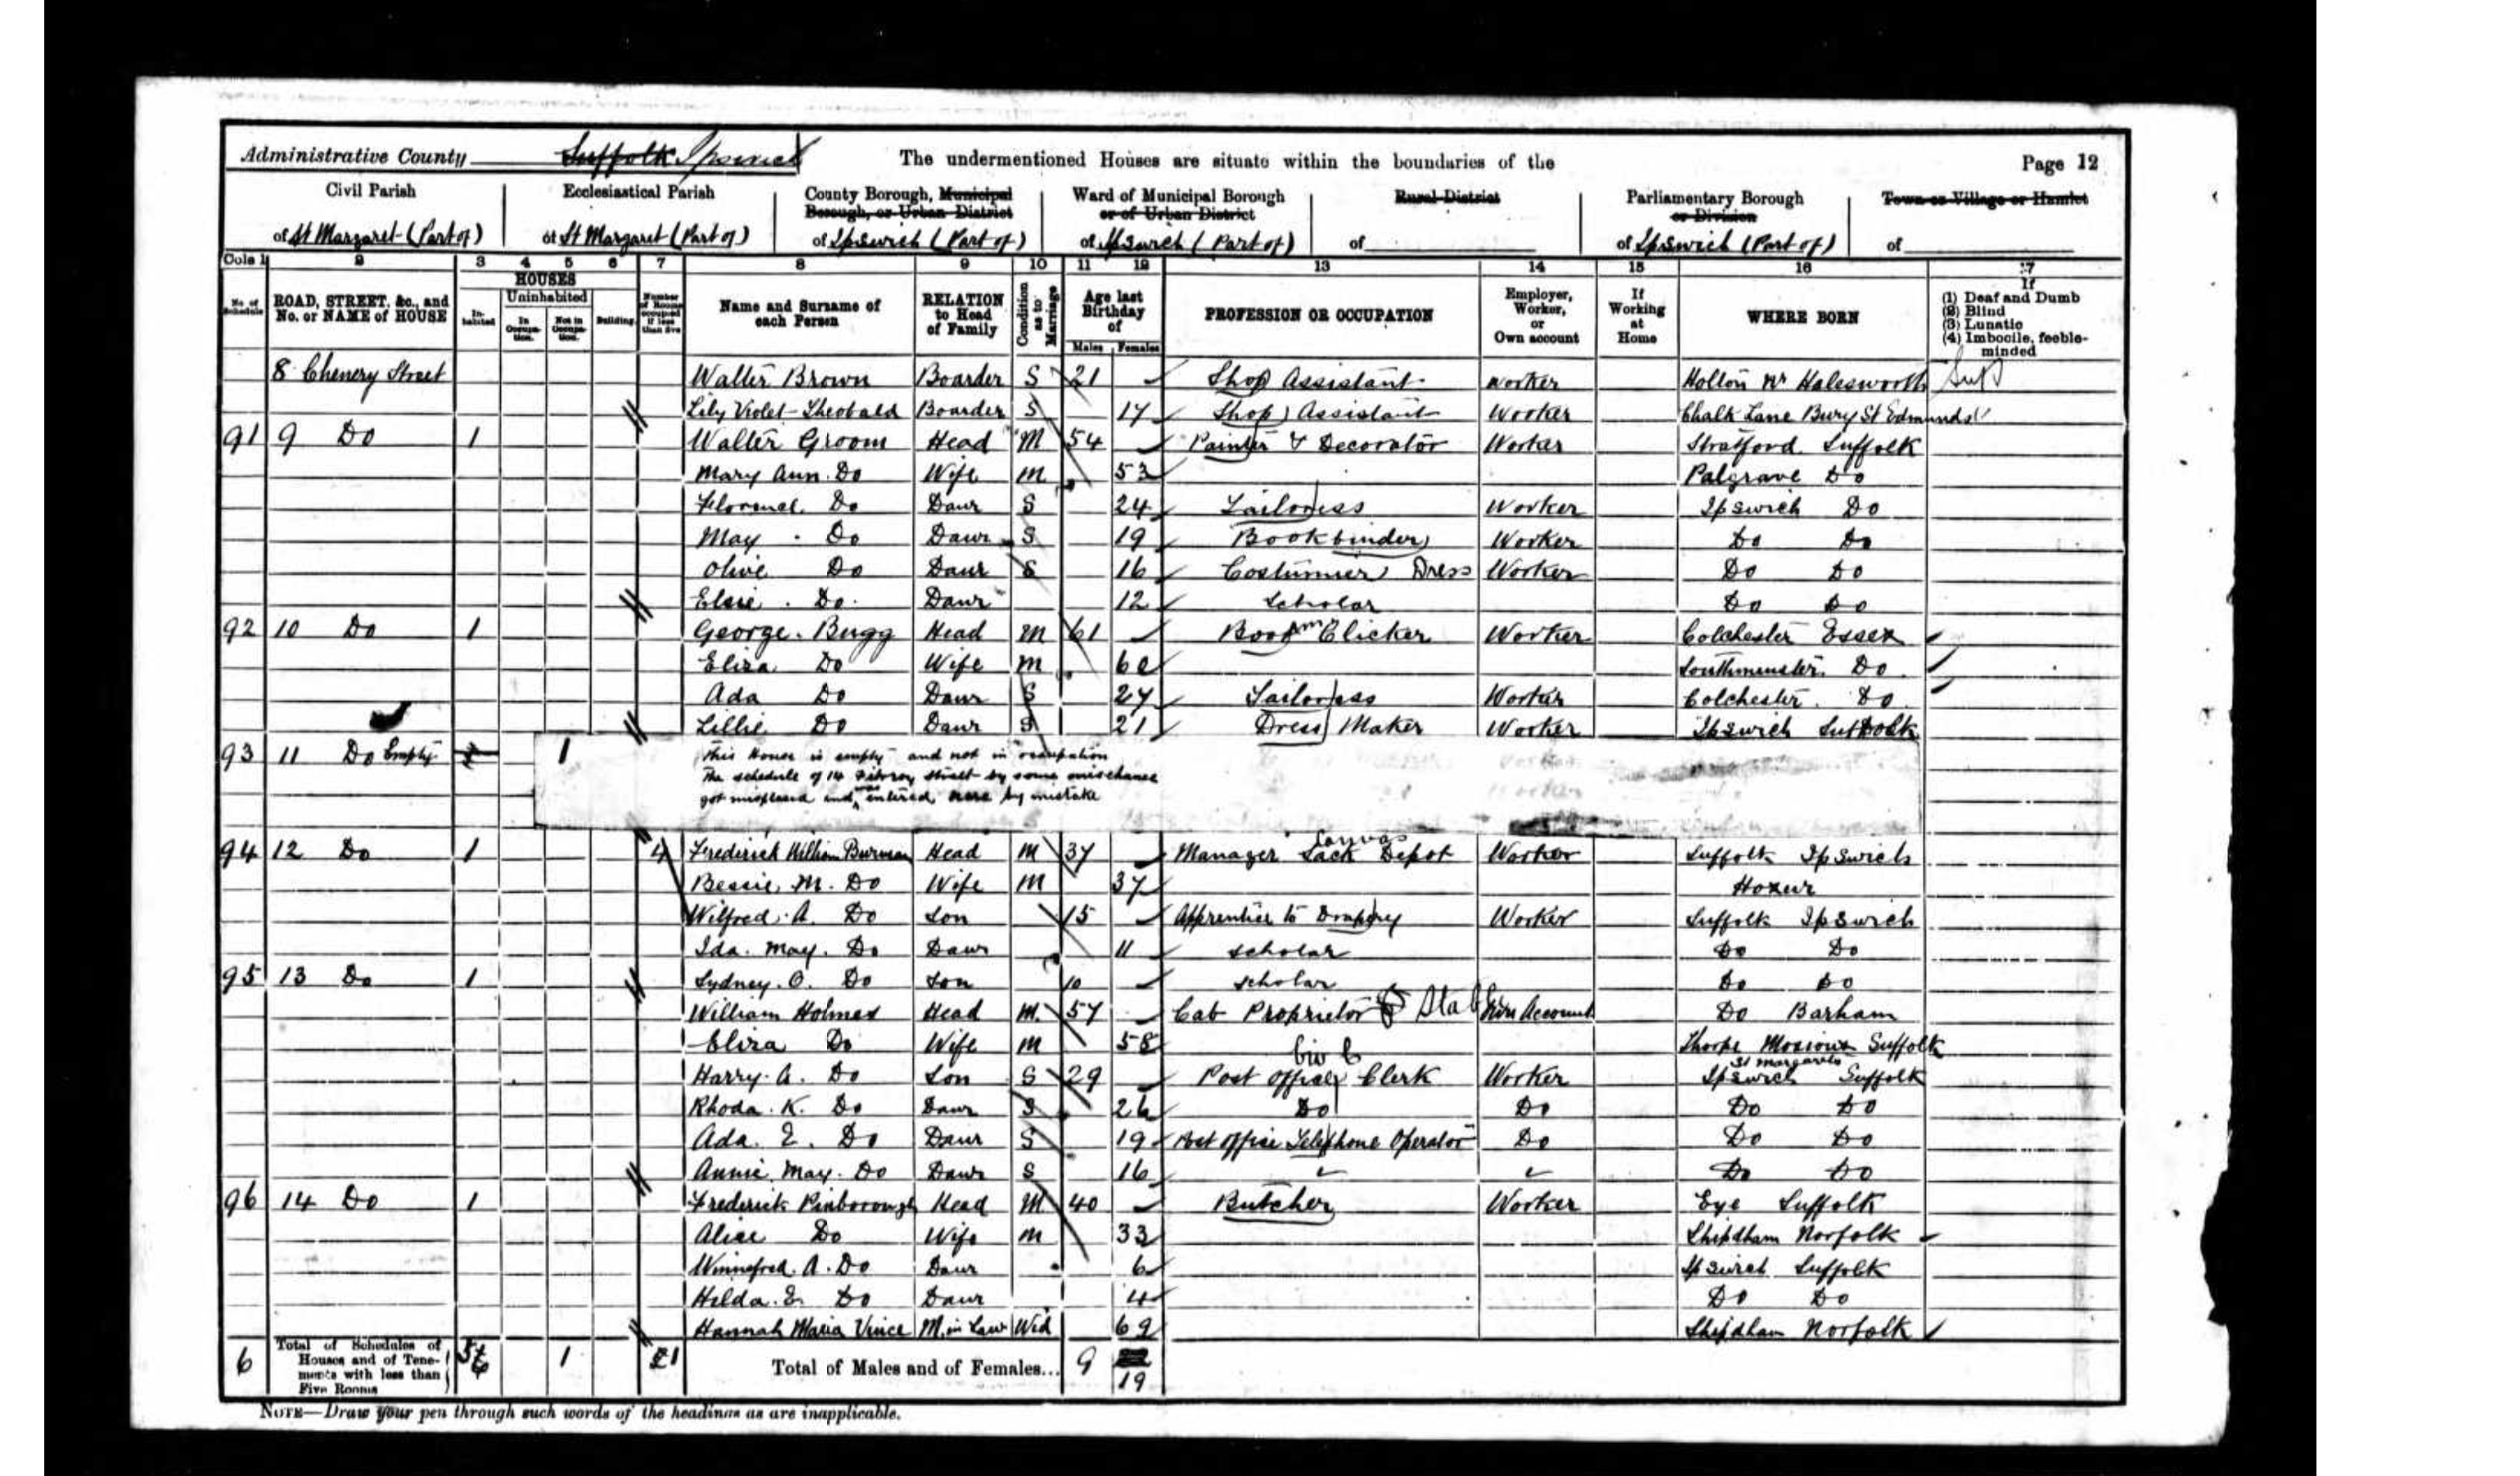 Administrative County Suffolk Ipswich The undermentioned Houses are situate within the boundaries of the Page 12
Civil Parish Ecclesiastical Parish County Borough, Municipal Borough, or Urban District Ward of Municipal Borough or of Urban District Rural District Parliamentary Borough or Division Town or Village or Hamlet
of St Margaret (Part of) of St Margaret (Part of) of Ipswich (Part of) of Ipswich (Part of) of of Ipswich (Part of) of
Cols 1 2 3 4 5 6 7 8 9 10 11 12 13 14 15 16 17
No. of Schedule ROAD, STREET, &c., and No. or NAME of HOUSE HOUSES Inhabited Uninhabited In Occupation. Not in Occupation. Building. Number of Rooms occupied if less than five Name and Surname of each Person RELATION to Head of Family Condition as to Marriage Age last Birthday of Males Females PROFESSION OR OCCUPATION Employer, Worker, or Own account If Working at Home WHERE BORN If (1) Deaf and Dumb (2) Blind (3) Lunatic (4) Imbecile, feeble-minded
8 Chenery Street Walter Brown Boarder S 21 Shop Assistant worker Holton Nr Halesworth Suff
Lily Violet Theobald Boarder S 17 Shop Assistant Worker Chalk Lane Bury St Edmunds
91 9 Do 1 Walter Groom Head M 54 Painter & Decorator Worker Stratford Suffolk
Mary Ann Do Wife M 53 Palgrave Do
Florence Do Daur S 24 Tailoress Worker Ipswich Do
May Do Daur S 19 Bookbinder Worker Do Do
Olive Do Daur S 16 Costumier Dress Worker Do Do
Elsie Do Daur 12 Scholar Do Do
92 10 Do 1 George Bugg Head M 61 Boot Clicker Worker Colchester Essex
Eliza Do Wife M 60 Southminster Do
Ada Do Daur S 27 Tailoress Worker Colchester Do
Lillie Do Daur S 21 Dress Maker Worker Ipswich Suffolk
93 11 Do Empty 1 This House is empty and not in occupation
The schedule of 14 Fitzroy Street by some mischance
got misplaced and was entered here by mistake
94 12 Do 1 4 Frederick William Burman Head M 37 Manager Canvas Sack Depot Worker Suffolk Ipswich
Bessie M. Do Wife M 37 Hoxur
Wilfred A. Do Son 15 Apprentice to Drapery Worker Suffolk Ipswich
Ida May Do Daur 11 scholar Do Do
95 13 Do 1 Sydney O. Do Son 10 scholar Do Do
William Holmes Head M 57 Cab Proprietor Own Account Do Barham
Eliza Do Wife M 58 Thorpe Suffolk
Harry A. Do Son S 29 Civ C Post Office Clerk Worker St Margarets Ipswich Suffolk
Rhoda K. Do Daur S 26 Do Do Do Do
Ada E. Do Daur S 19 Post Office Telephone Operator Do Do Do
Annie May Do Daur S 16 Do Do
96 14 Do 1 Frederick Pinborough Head M 40 Butcher Worker Eye Suffolk
Alice Do Wife M 33 Shipdham Norfolk
Winnefred A. Do Daur 6 Ipswich Suffolk
Hilda E. Do Daur 4 Do Do
Hannah Maria Vince M. in Law Wid 69 Shipdham Norfolk
6 Total of Schedules of Houses and of Tenements with less than Five Rooms 5 1 1 Total of Males and of Females... 9 19
NOTE—Draw your pen through such words of the headings as are inapplicable.